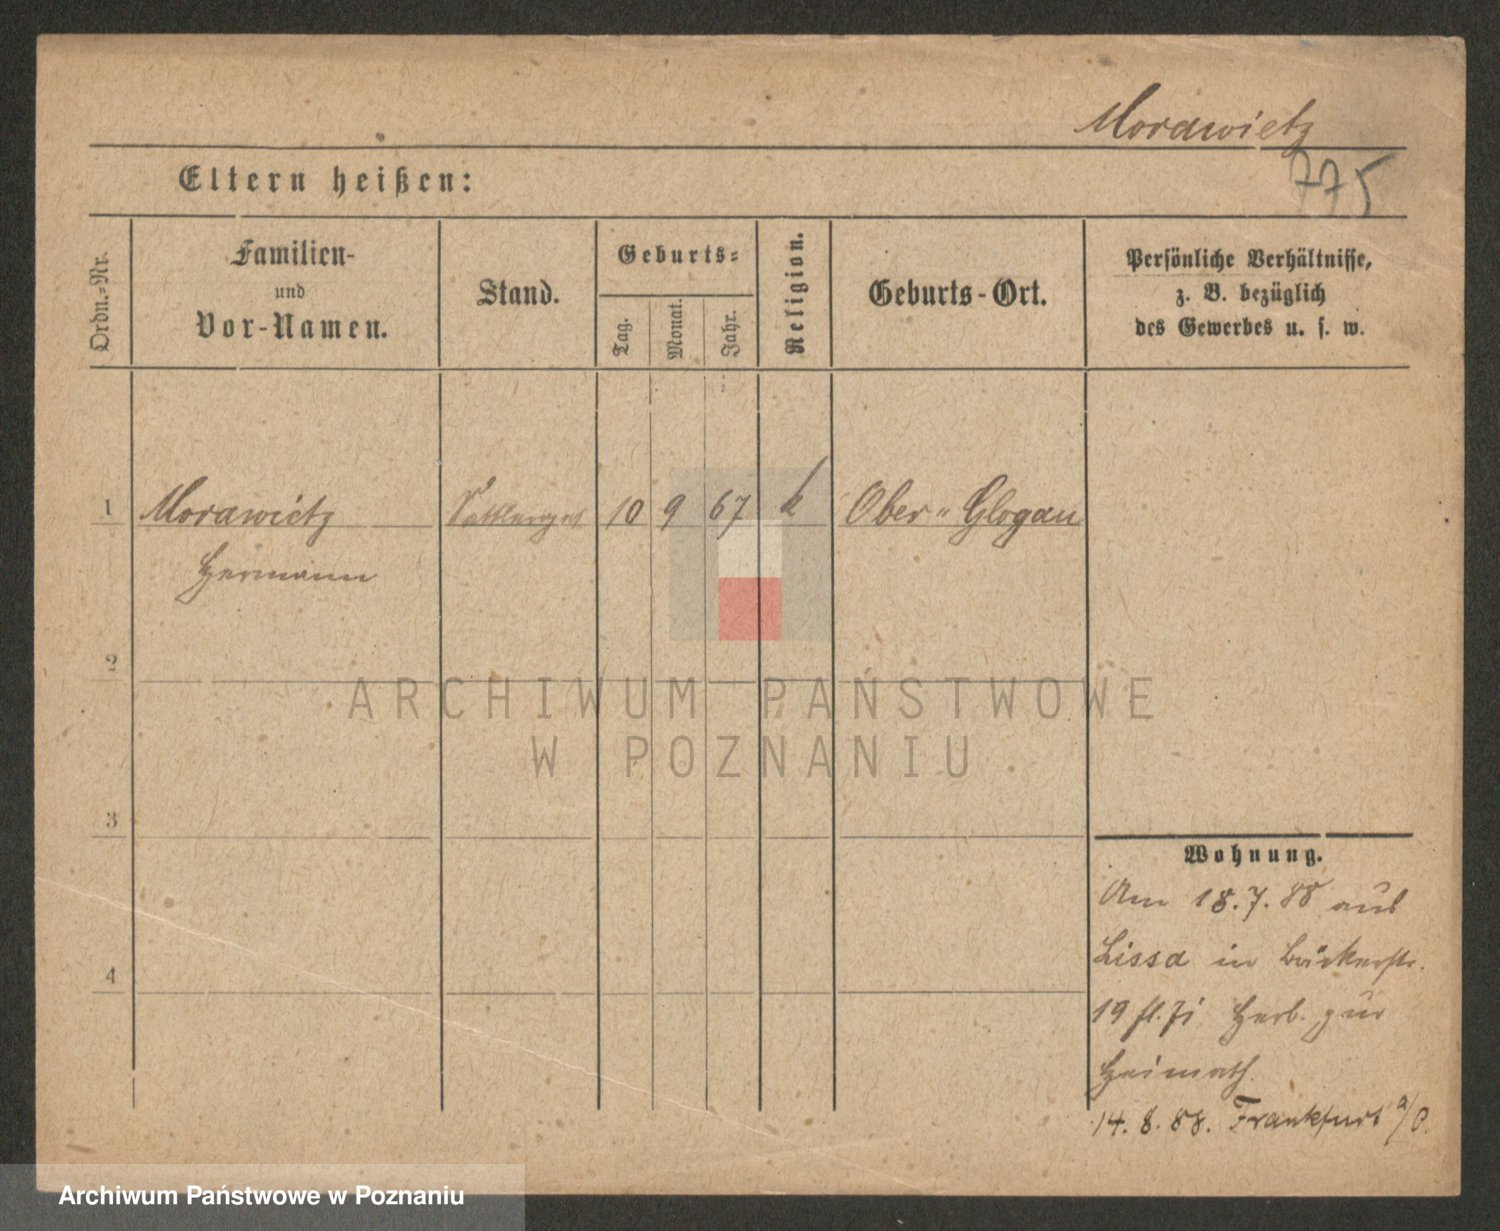 Morawietz
775
Eltern heißen:
Ordn.=Nr.
Familien-
und
Vor-Namen.
Stand.
Geburts=
Tag.
Monat.
Jahr.
Religion.
Geburts-Ort.
Persönliche Verhältnisse,
z. B. bezüglich
des Gewerbes u. s. w.
1 Morawietz Sattlerges 10 9 67 k Ober-Glogau
Hermann
2
3
4
Wohnung.
Am 18.7.88 aus
Lissa in Bäckerstr.
19 Herb. zur
Heimath.
14.8.88. Frankfurt a/O.
ARCHIWUM PAŃSTWOWE
W POZNANIU
Archiwum Państwowe w Poznaniu